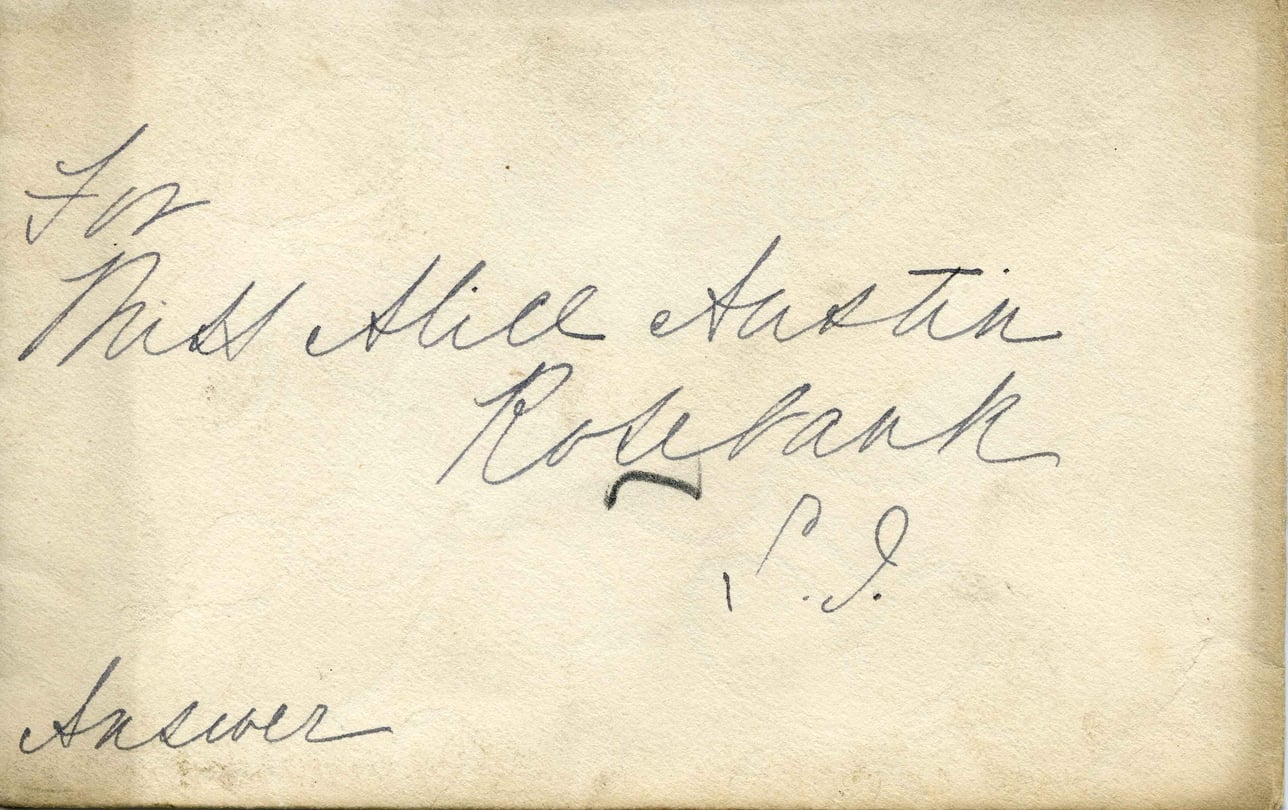 For
Miss Alice Austin
Rosebank
S.I.
Answer